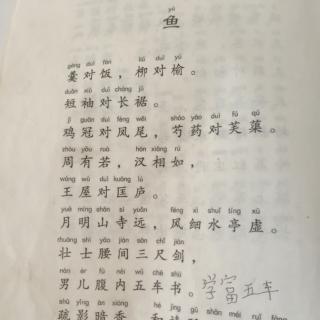 yú
鱼
gēng duì fàn liǔ duì yú
羹对饭，柳对榆。
duǎn xiù duì cháng jū
短袖对长裾。
jī guān duì fèng wěi sháo yào duì fú qú
鸡冠对凤尾，芍药对芙蕖。
zhōu yǒu ruò hàn xiàng rú
周有若，汉相如，
wáng wū duì kuāng lú
王屋对匡庐。
yuè míng shān sì yuǎn fēng xì shuǐ tíng xū
月明山寺远，风细水亭虚。
zhuàng shì yāo jiān sān chǐ jiàn
壮士腰间三尺剑，
nán ér fù nèi wǔ chē shū
男儿腹内五车书。学富五车
shū yǐng àn xiāng hé jìng gū shān méi ruǐ fàng
疏影暗香，